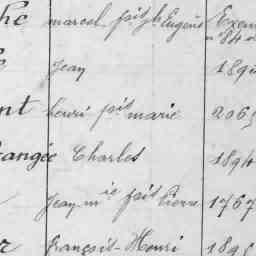 he marcel fait ph Eugène Exem
n° 840
Jean 189
nt henri fait marie 2065
rangée Charles 1894
Jean mie fait Pierre 1767
er François-Henri 1895